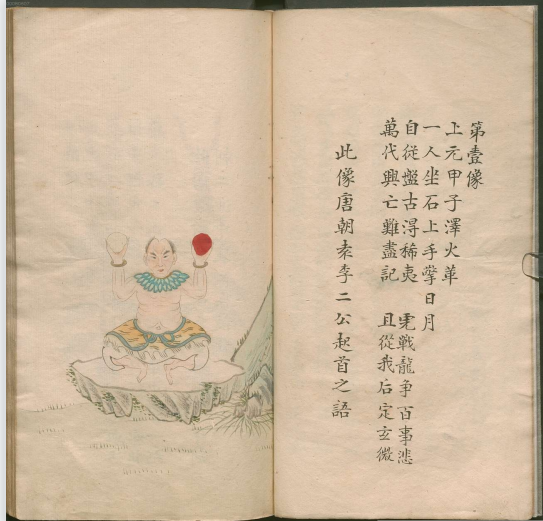 第壹像
上元甲子澤火革
一人坐石上手擎日月
自從盤古得稀夷 虎戰龍爭百事悲
萬代興亡難盡記 且從我后定玄微
此像唐朝袁李二公起首之語